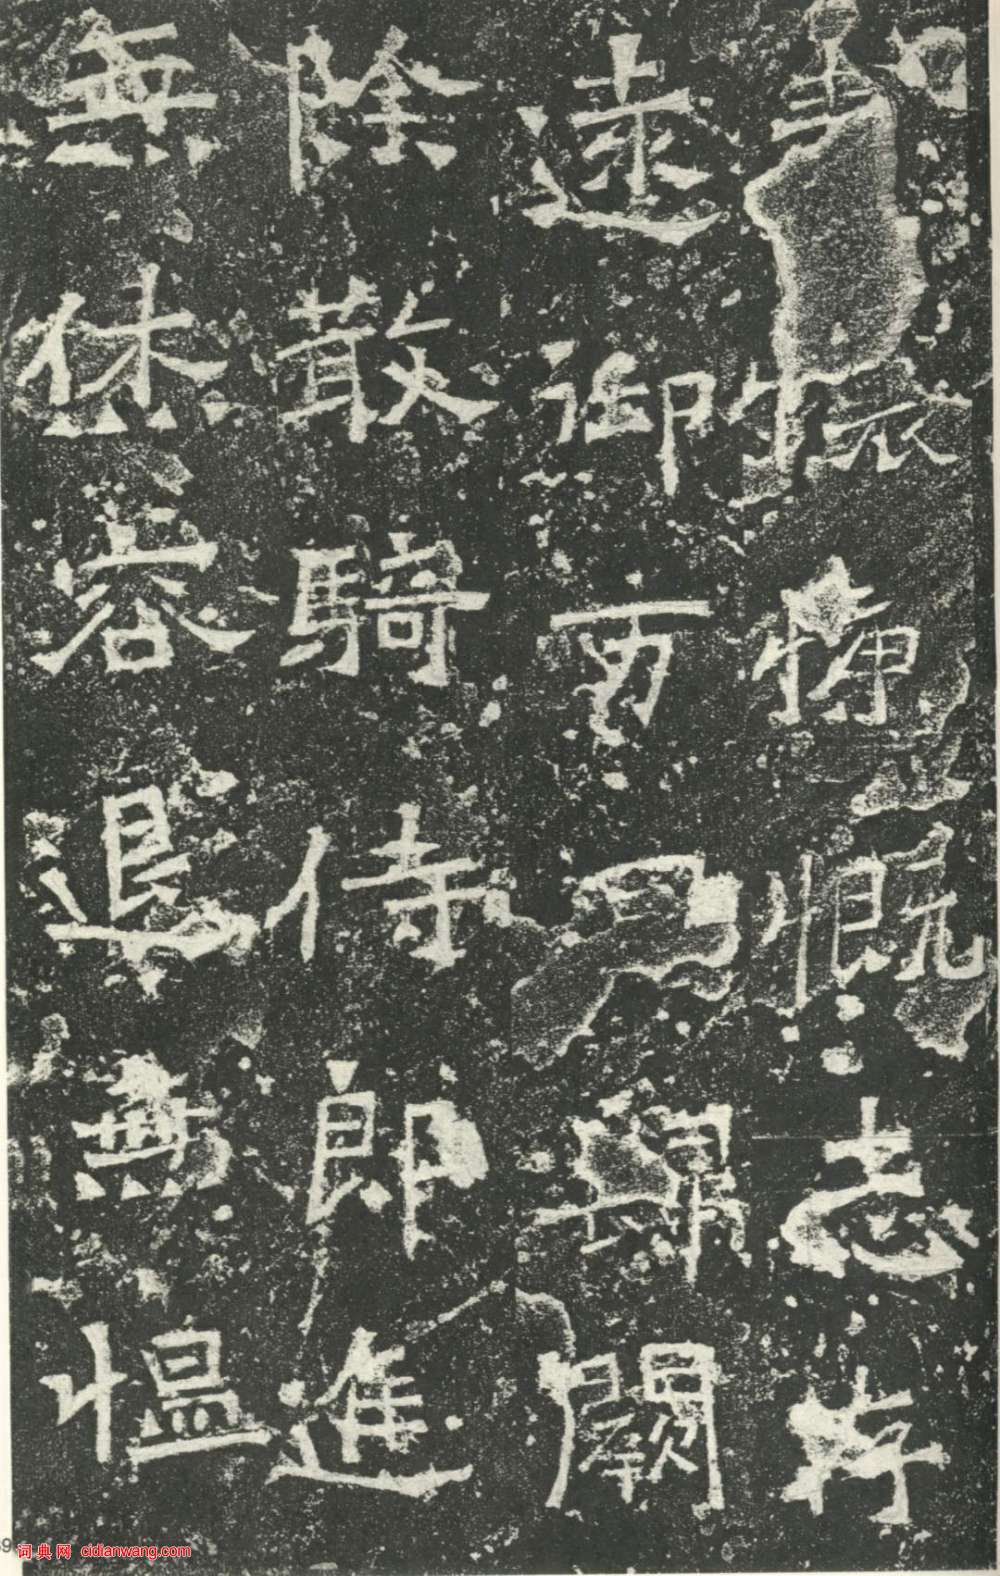 懷慨志存
遠御闕
除散騎侍郎進
無休容退無愠
69 词典网 cidianwang.com